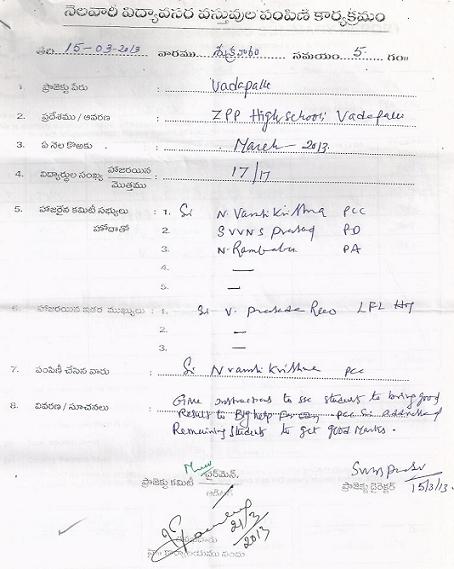 నెలవారీ విద్యావసర వస్తువుల పంపిణీ కార్యక్రమం
తేది 15-03-2013 వారము శుక్రవారం సమయం 5 గం॥
1. ప్రాజెక్టు పేరు Vadapalle
2. ప్రదేశము / ఆవరణ ZPP High school Vadapalle
3. ఏ నెల కొఱకు March - 2013
4. విద్యార్థుల సంఖ్య హాజరయిన 17/17
మొత్తము
5. హాజరైన కమిటీ సభ్యులు : 1. Sri N. Vamsi Krishna PCC
హోదాతో 2. SVVNS Prasad PD
3. N. Rambabu PA
4. —
5. —
6. హాజరయిన ఇతర ముఖ్యులు : 1. Sri V. Prasada Rao LFL HM
2. —
3. —
7. పంపిణీ చేసిన వారు : Sri N Vamsi Krishna PCC
8. వివరణ / సూచనలు : Give instructions to ssc student to bring good
Result to PCC Sri
Remaining student to get good Marks.
ఛైర్మెన్,
ప్రాజెక్టు కమిటీ
ప్రాజెక్టు డైరెక్టర్ 15/3/13.
21/3
2013